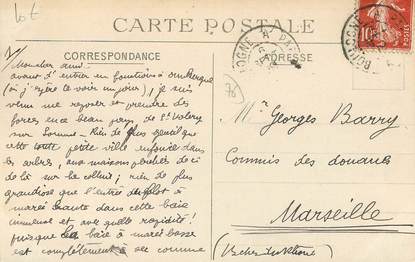 Lot
CARTE POSTALE
CORRESPONDANCE
ADRESSE
Mon cher ami
avant d'entrer en fonctions à Dunkerque
(où j'espère te voir un jour), je suis
venu me reposer et prendre des
forces au beau pays de St Valery
sur Somme. Rien de plus gentil que
cette toute petite ville enfouie dans
les arbres, aux maisons perchées de ci
de là sur la colline; rien de plus
grandiose que l'entrée du flot à
marée haute dans cette baie
immense et avec quelle rapidité!
puisque la baie à marée basse
est complètement à sec comme
10
BOULOGNE A PARIS
BOULOGNE A PARIS
76
Mr Georges Barry
Commis des douanes
Marseille
(Bches du Rhône)